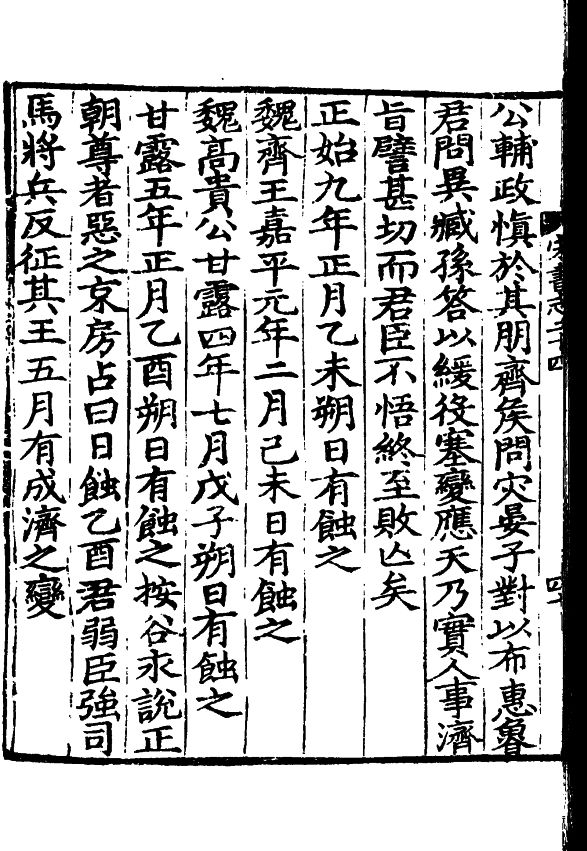 公輔政慎於其朋齊矦問灾晏子對以布惠魯
君問異臧孫答以緩役塞變應天乃實人事濟
旨譬甚切而君臣不悟終至敗亾矣
正始九年正月乙未朔日有蝕之
魏齊王嘉平元年二月己未日有蝕之
魏高貴公甘露四年七月戊子朔日有蝕之
甘露五年正月乙酉朔日有蝕之按谷永說正
朝尊者惡之京房占曰日蝕乙酉君弱臣強司
馬將兵反征其王五月有成濟之變
宋書志二十四